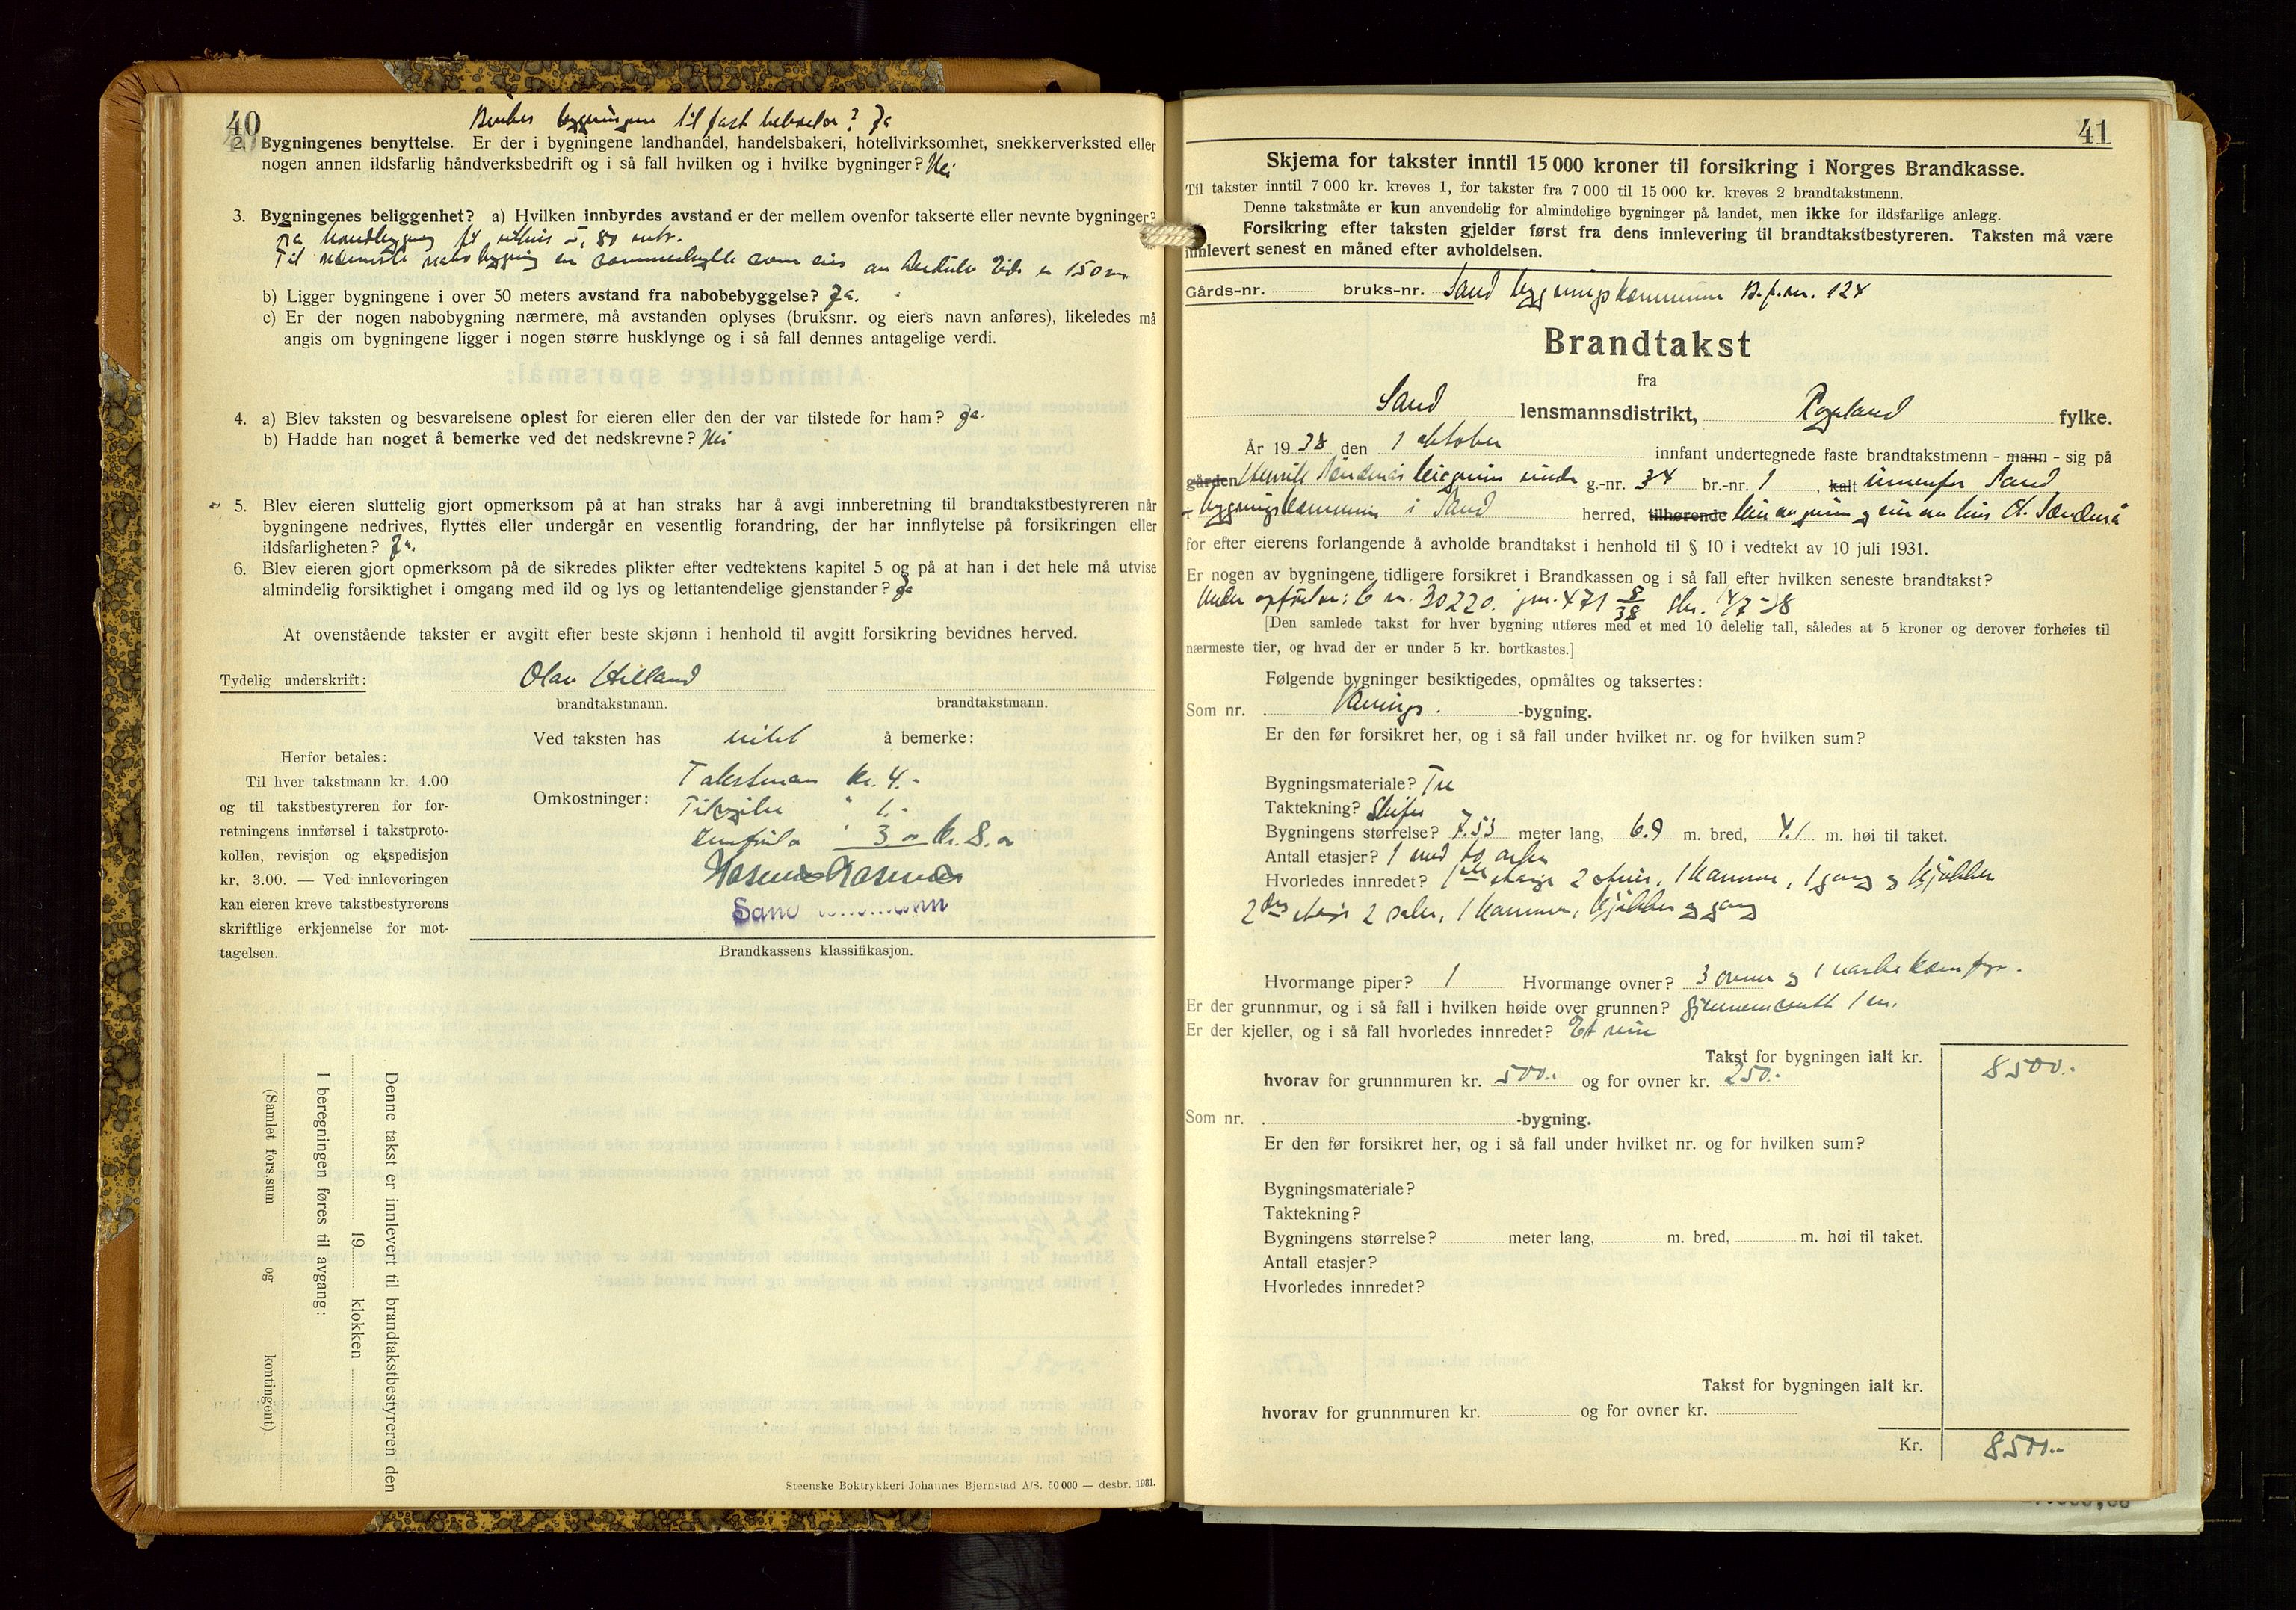 40
Brukes bygningene til fast beboelse? Ja
2. Bygningenes benyttelse. Er der i bygningene landhandel, handelsbakeri, hotellvirksomhet, snekkerverksted eller
nogen annen ildsfarlig håndverksbedrift og i så fall hvilken og i hvilke bygninger? Nei
3. Bygningenes beliggenhet? a) Hvilken innbyrdes avstand er der mellem ovenfor takserte eller nevnte bygninger?
Fra våndbygning til uthus 5,80 mtr.
Til nærmeste nabobygning en sommerhytte som eies av Eide er 150 m
b) Ligger bygningene i over 50 meters avstand fra nabobebyggelse? Ja.
c) Er der nogen nabobygning nærmere, må avstanden oplyses (bruksnr. og eiers navn anføres), likeledes må
angis om bygningene ligger i nogen større husklynge og i så fall dennes antagelige verdi.
4. a) Blev taksten og besvarelsene oplest for eieren eller den der var tilstede for ham? Ja.
b) Hadde han noget å bemerke ved det nedskrevne? Nei
5. Blev eieren sluttelig gjort opmerksom på at han straks har å avgi innberetning til brandtakstbestyreren når
bygningene nedrives, flyttes eller undergår en vesentlig forandring, der har innflytelse på forsikringen eller
ildsfarligheten? Ja.
6. Blev eieren gjort opmerksom på de sikredes plikter efter vedtektens kapitel 5 og på at han i det hele må utvise
almindelig forsiktighet i omgang med ild og lys og lettantendelige gjenstander? Ja
At ovenstående takster er avgitt efter beste skjønn i henhold til avgitt forsikring bevidnes herved.
Tydelig underskrift: Olav Helland
brandtakstmann. brandtakstmann.
Ved taksten has intet å bemerke:
Herfor betales:
Til hver takstmann kr. 4.00
og til takstbestyreren for for-
retningens innførsel i takstproto-
kollen, revisjon og ekspedisjon
kr. 3.00. — Ved innleveringen
kan eieren kreve takstbestyrerens
skriftlige erkjennelse for mot-
tagelsen.
Omkostninger:
Takstman kr. 4.-
" 1.-
" 3 - kr. 8.-
Rasmus Rasmussen
Sand lensmann
Brandkassens klassifikasjon.
Denne takst er innlevert til brandtakstbestyreren den
19 klokken
I beregningen føres til avgang:
(Samlet fors.sum og kontingent).
Steenske Boktrykkeri Johannes Bjørnstad A/S. 50 000 — desbr. 1931.
41
Skjema for takster inntil 15 000 kroner til forsikring i Norges Brandkasse.
Til takster inntil 7 000 kr. kreves 1, for takster fra 7 000 til 15 000 kr. kreves 2 brandtakstmenn.
Denne takstmåte er kun anvendelig for almindelige bygninger på landet, men ikke for ildsfarlige anlegg.
Forsikring efter taksten gjelder først fra dens innlevering til brandtakstbestyreren. Taksten må være
innlevert senest en måned efter avholdelsen.
Gårds-nr. bruks-nr. Sand bygningskommune B.f.nr. 124
Brandtakst
fra
Sand lensmannsdistrikt, Rogaland fylke.
År 1938 den 1 oktober innfant undertegnede faste brandtakstmenn - mann - sig på
gården Henrik Sandenes under g.-nr. 34 br.-nr. 1, kalt innenfor Sand
bygningskommune i Sand herred, tilhørende
for efter eierens forlangende å avholde brandtakst i henhold til § 10 i vedtekt av 10 juli 1931.
Er nogen av bygningene tidligere forsikret i Brandkassen og i så fall efter hvilken seneste brandtakst?
Under opførelse: nr. 30220. jnr. 471 8/38 14/7-38
[Den samlede takst for hver bygning utføres med et med 10 delelig tall, således at 5 kroner og derover forhøies til
nærmeste tier, og hvad der er under 5 kr. bortkastes.]
Følgende bygninger besiktigedes, opmåltes og taksertes:
Som nr. Vånings-bygning.
Er den før forsikret her, og i så fall under hvilket nr. og for hvilken sum?
Bygningsmateriale? Tre
Taktekning? Skifer
Bygningens størrelse? 7.53 meter lang, 6.9 m. bred, 4.1 m. høi til taket.
Antall etasjer? 1 med to arker
Hvorledes innredet? 1ste etasje 2 stuer, 1 kammer, 1 gang og kjøkken
2den etasje 2 saler, 1 kammer, kjøkken og gang
Hvormange piper? 1 Hvormange ovner? 3 ovner og 1 vaske komfyr.
Er der grunnmur, og i så fall i hvilken høide over grunnen? gjennemsnitt 1 m.
Er der kjeller, og i så fall hvorledes innredet? Et rum
Takst for bygningen ialt kr. 8500.-
hvorav for grunnmuren kr. 500.- og for ovner kr. 250.-
Som nr. -bygning.
Er den før forsikret her, og i så fall under hvilket nr. og for hvilken sum?
Bygningsmateriale?
Taktekning?
Bygningens størrelse? meter lang, m. bred, m. høi til taket.
Antall etasjer?
Hvorledes innredet?
Takst for bygningen ialt kr.
hvorav for grunnmuren kr. og for ovner kr.
Kr. 8500.-